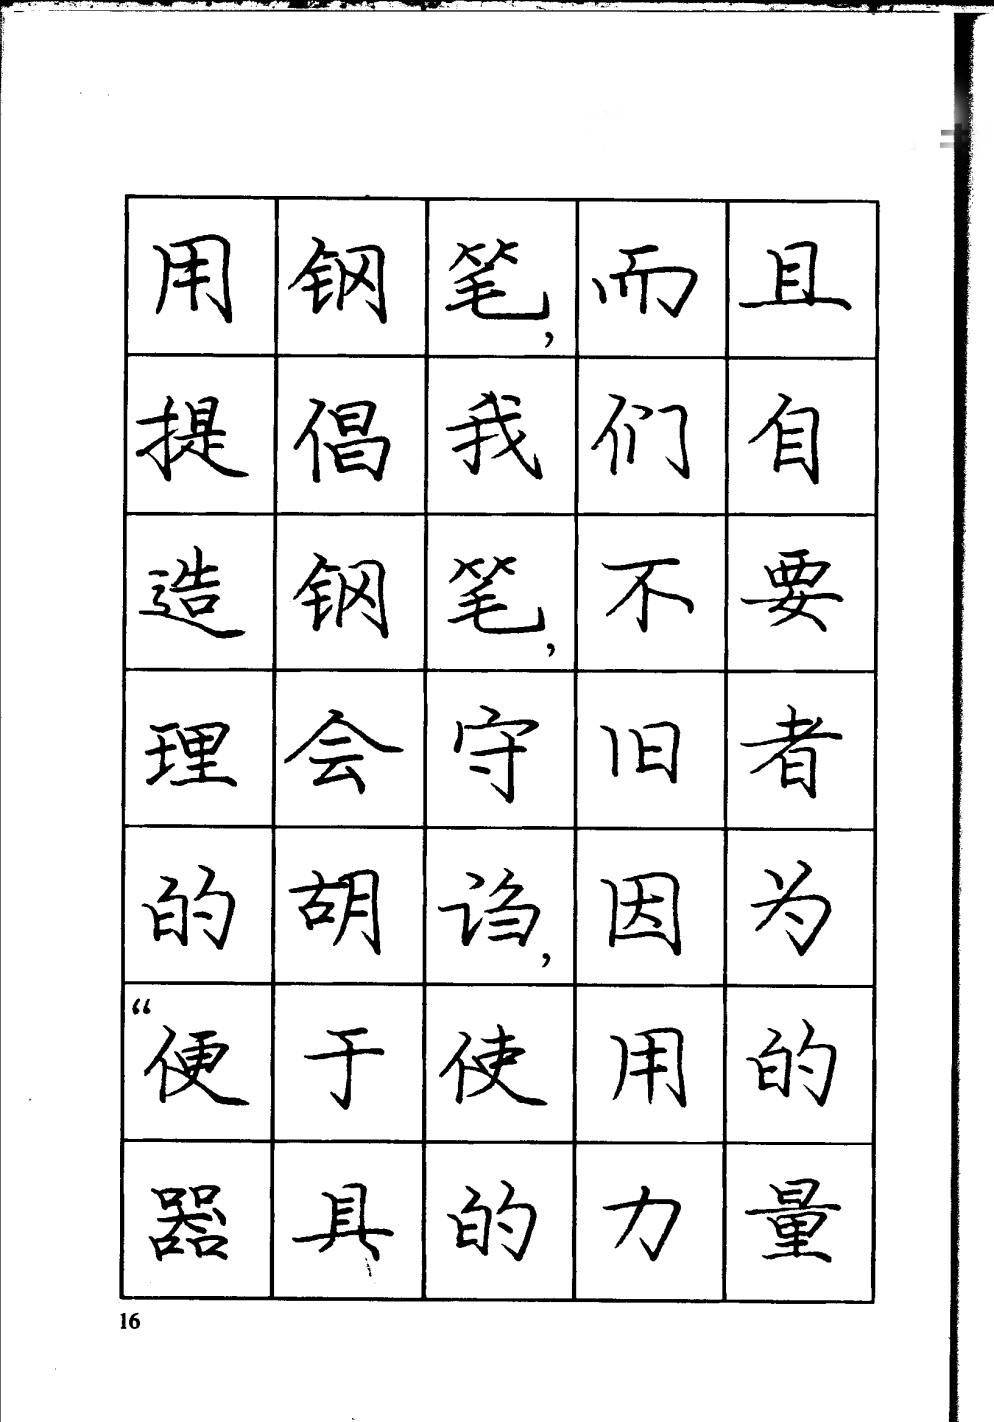 用钢笔，而且
提倡我们自
造钢笔，不要
理会守旧者
的胡诌，因为
“便于使用的
器具的力量
16